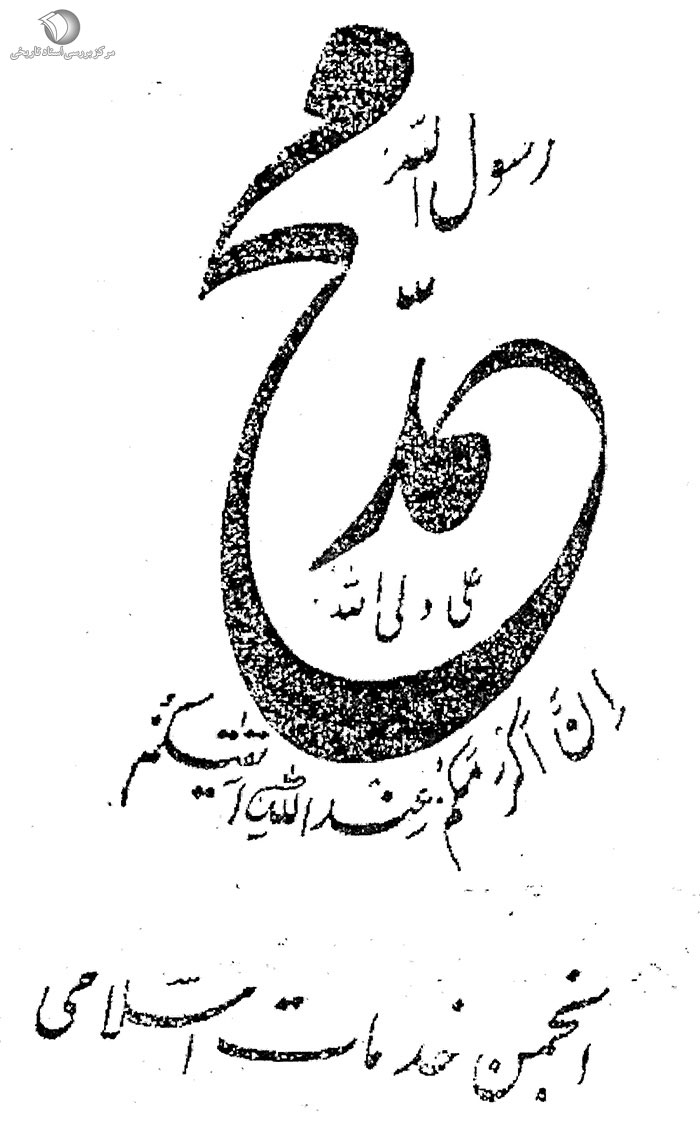 مرکز بررسی اسناد تاریخی
رسول الله
محمد
علی ولی الله
إن أكرمكم عند الله أتقیكم
انجمن خدمات اسلامی